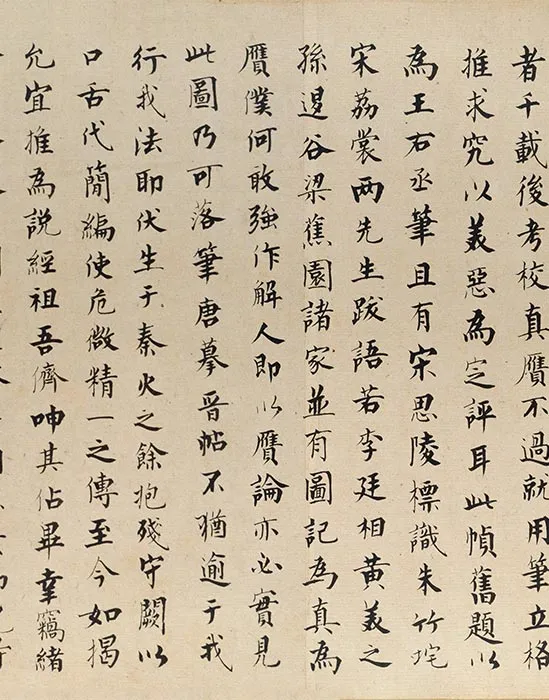 者千載後考校真贋不過就用筆立格
推求究以美惡為定評耳此幀舊題以
為王右丞筆且有宋思陵標識朱竹垞
宋荔裳兩先生跋語若李廷相黃美之
孫退谷梁蕉園諸家並有圖記為真為
贋僕何敢強作解人即以贋論亦必實見
此圖乃可落筆唐摹晉帖不猶逾于我
行我法耶伏生于秦火之餘抱殘守闕以
口舌代簡編使危微精一之傳至今如揭
允宜推為說經祖吾儕呻其佔畢幸竊緒